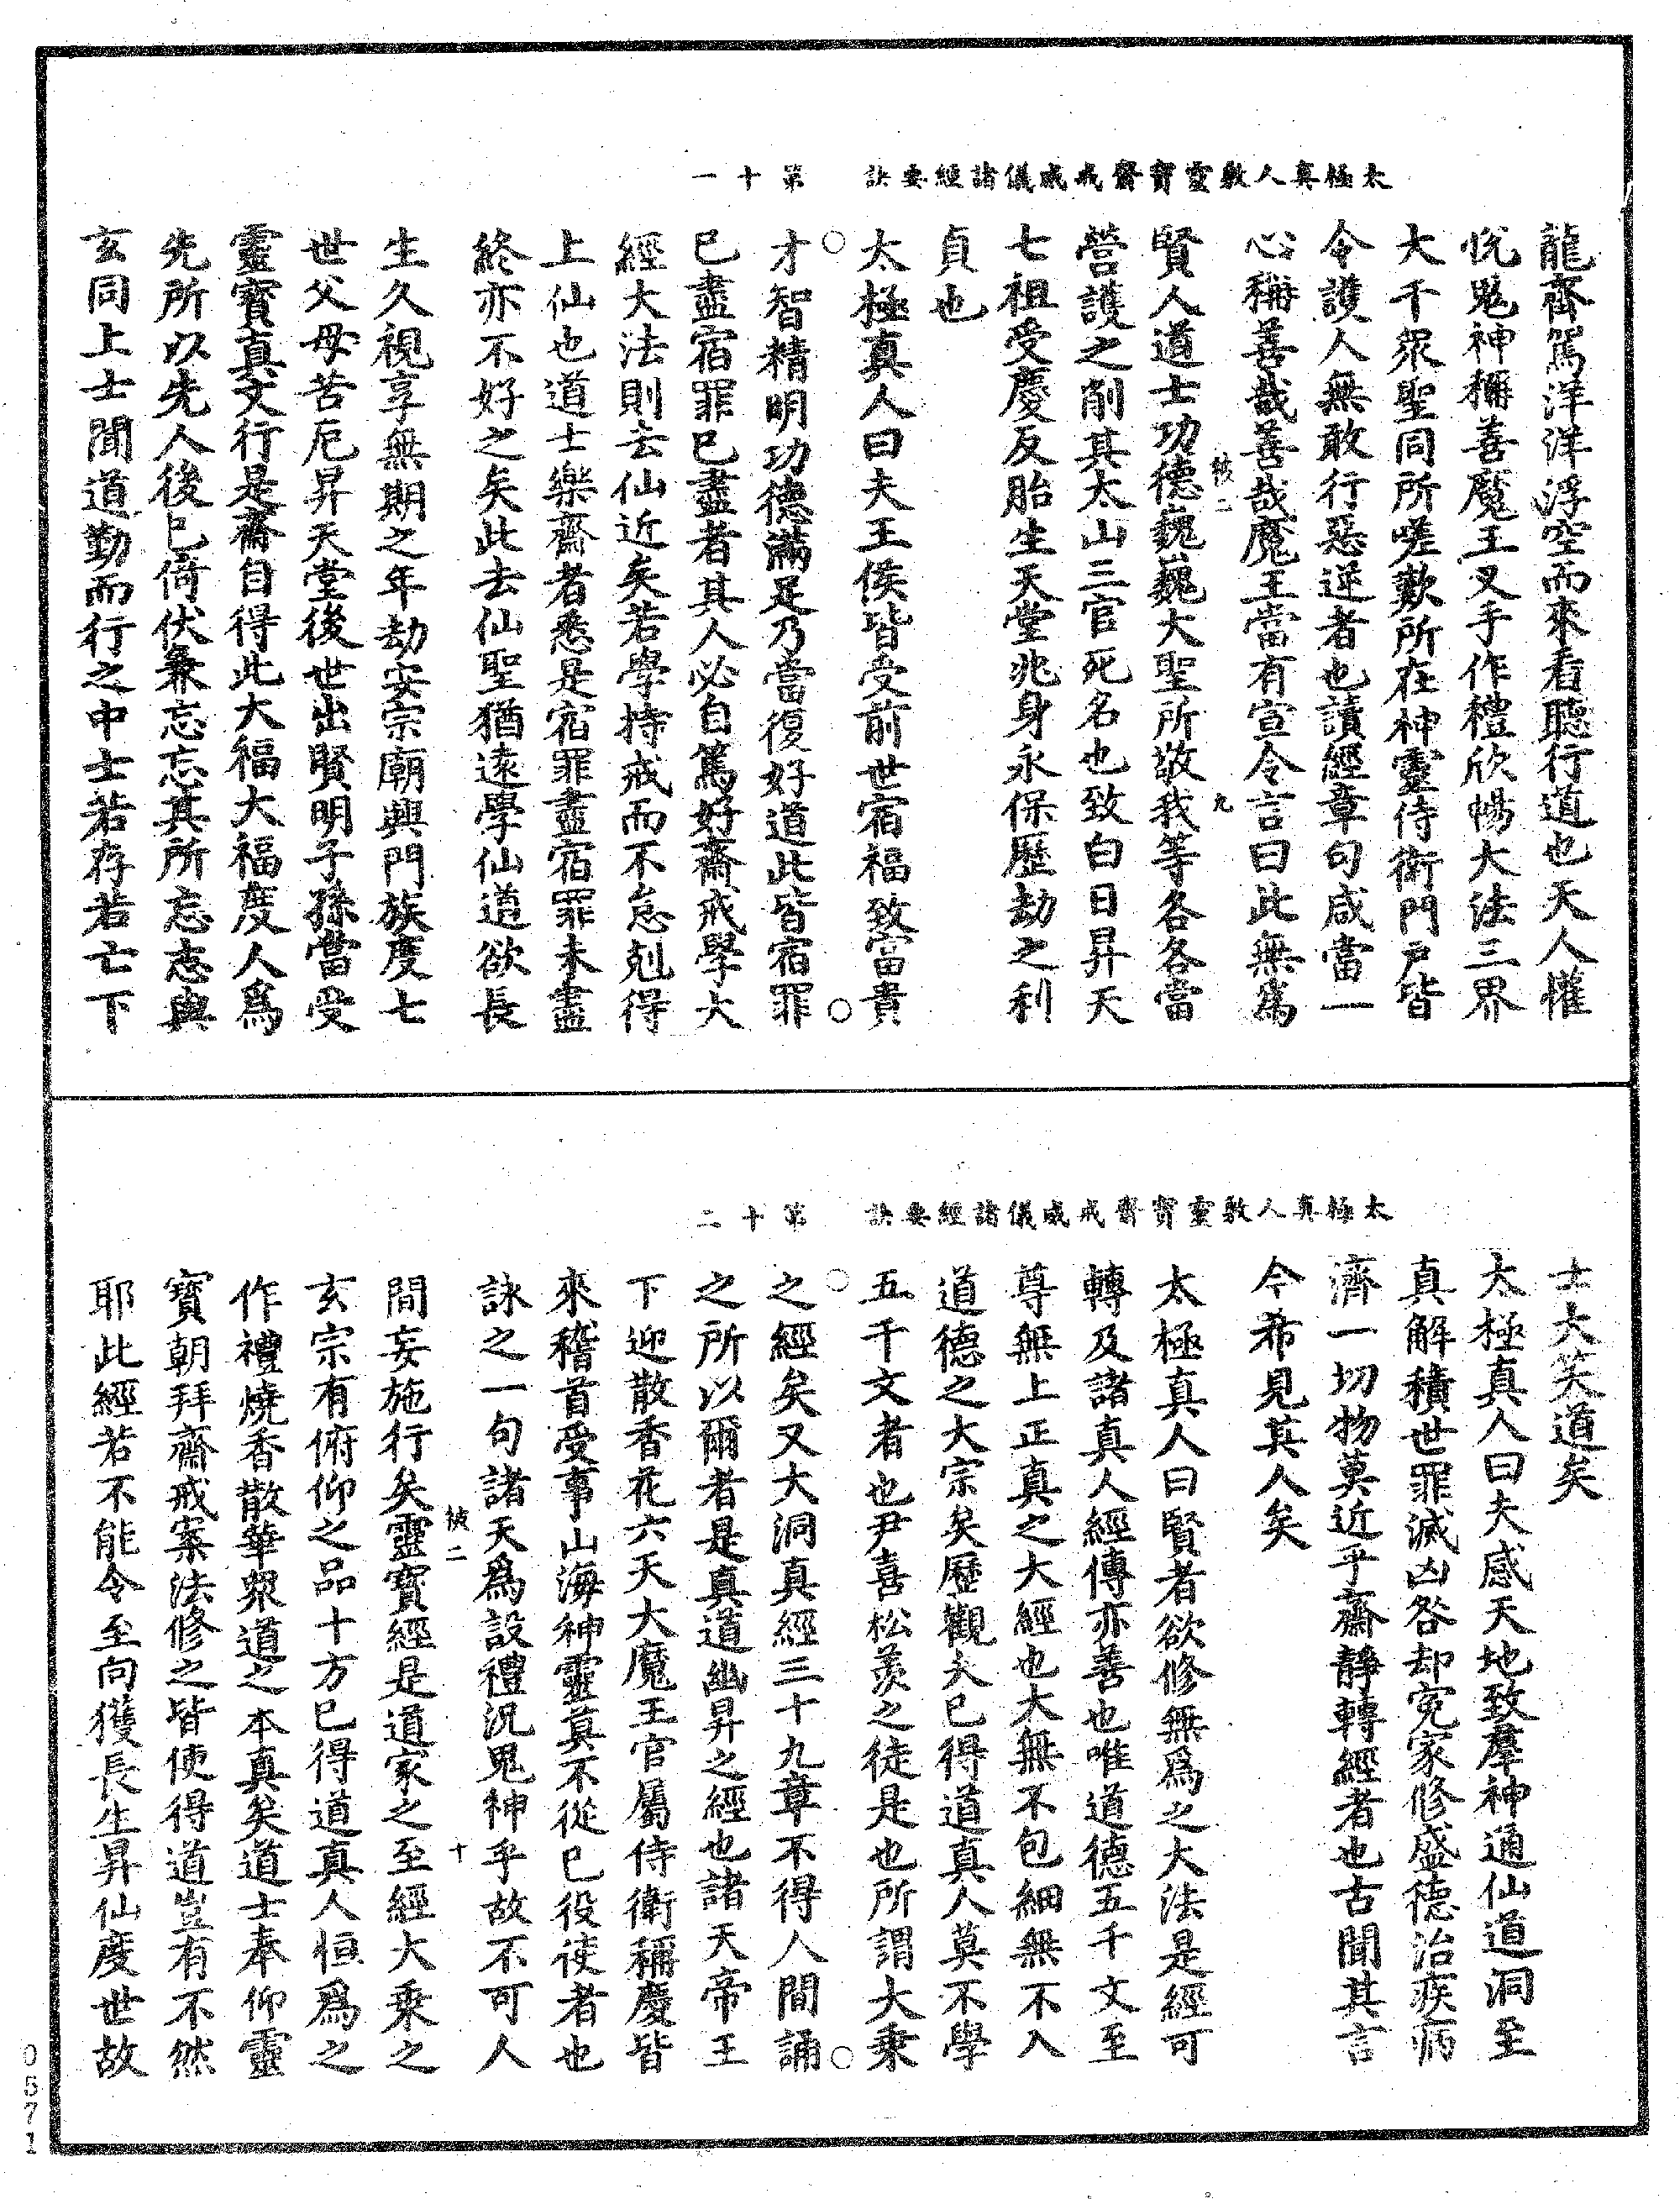 太極真人敷靈寶齋戒威儀諸經要訣 第十一
龍齊駕洋洋浮空而來看聽行道也天人懽
悅鬼神稱善魔王叉手作禮欣暢大法三界
大千眾聖同所嗟歎所在神靈侍衛門戶皆
令護人無敢行惡逆者也讀經章句咸當一
心稱善哉善哉魔王當有宣令言曰此無為
賢人道士功德巍巍大聖所敬我等各各當
營護之削其太山三官死名也致白日昇天
七祖受慶反胎生天堂兆身永保歷劫之利
貞也
太極真人曰夫王侯皆受前世宿福致富貴
才智精明功德滿足乃當復好道此皆宿罪
已盡宿罪已盡者其人必自篤好齋戒學大
經大法則去仙近矣若學持戒而不怠剋得
上仙也道士樂齋者悉是宿罪盡宿罪未盡
終亦不好之矣此去仙聖猶遠學仙道欲長
生久視享無期之年劫安宗廟興門族度七
世父母苦厄昇天堂後世出賢明子孫當受
靈寶真文行是齋自得此大福大福度人為
先所以先人後已倚伏兼忘忘其所忘志與
玄同上士聞道勤而行之中士若存若亡下
被二
九
太極真人敷靈寶齋戒威儀諸經要訣 第十二
士大笑道矣
太極真人曰夫感天地致羣神通仙道洞至
真解積世罪滅凶咎却冤家修盛德治疾病
濟一切物莫近乎齋靜轉經者也古聞其言
今希見其人矣
太極真人曰賢者欲修無為之大法是經可
轉及諸真人經傳亦善也唯道德五千文至
尊無上正真之大經也大無不包細無不入
道德之大宗矣歷觀夫已得道真人莫不學
五千文者也尹喜松羨之徒是也所謂大乘
之經矣又大洞真經三十九章不得人間誦
之所以爾者是真道幽昇之經也諸天帝王
下迎散香花六天大魔王官屬侍衛稱慶皆
來稽首受事山海神靈莫不從已役使者也
詠之一句諸天為設禮況鬼神乎故不可人
間妄施行矣靈寶經是道家之至經大乘之
玄宗有俯仰之品十方已得道真人恒為之
作禮燒香散華眾道之本真矣道士奉仰靈
寶朝拜齋戒案法修之皆使得道豈有不然
耶此經若不能令至向獲長生昇仙度世故
被二
十
0571